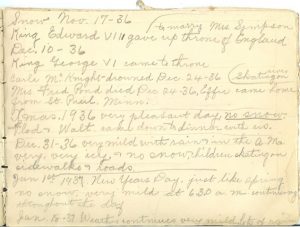 Snow Nov. 17-36
to marry Mrs Simpson
King Edward VIII gave up throne of England
Dec. 10-36
King George VI came to throne
Earle McKnight drowned Dec. 24-36 (skating river
Mrs Fred Pond died Dec 24-36, Effie came home
from St Paul, Minn.
Xmas. 1936 very pleasant day, no snow.
& Walt came down to dinner with us.
Dec. 31-36 very mild with rain in the A.M.
very, very icy, & no snow, children skating on
sidewalks & roads
Jan 1st 1937. New Years Day, just like spring
no snow, very mild at 6.30 a.m. continuing
throughout the day
Jan. continues very mild